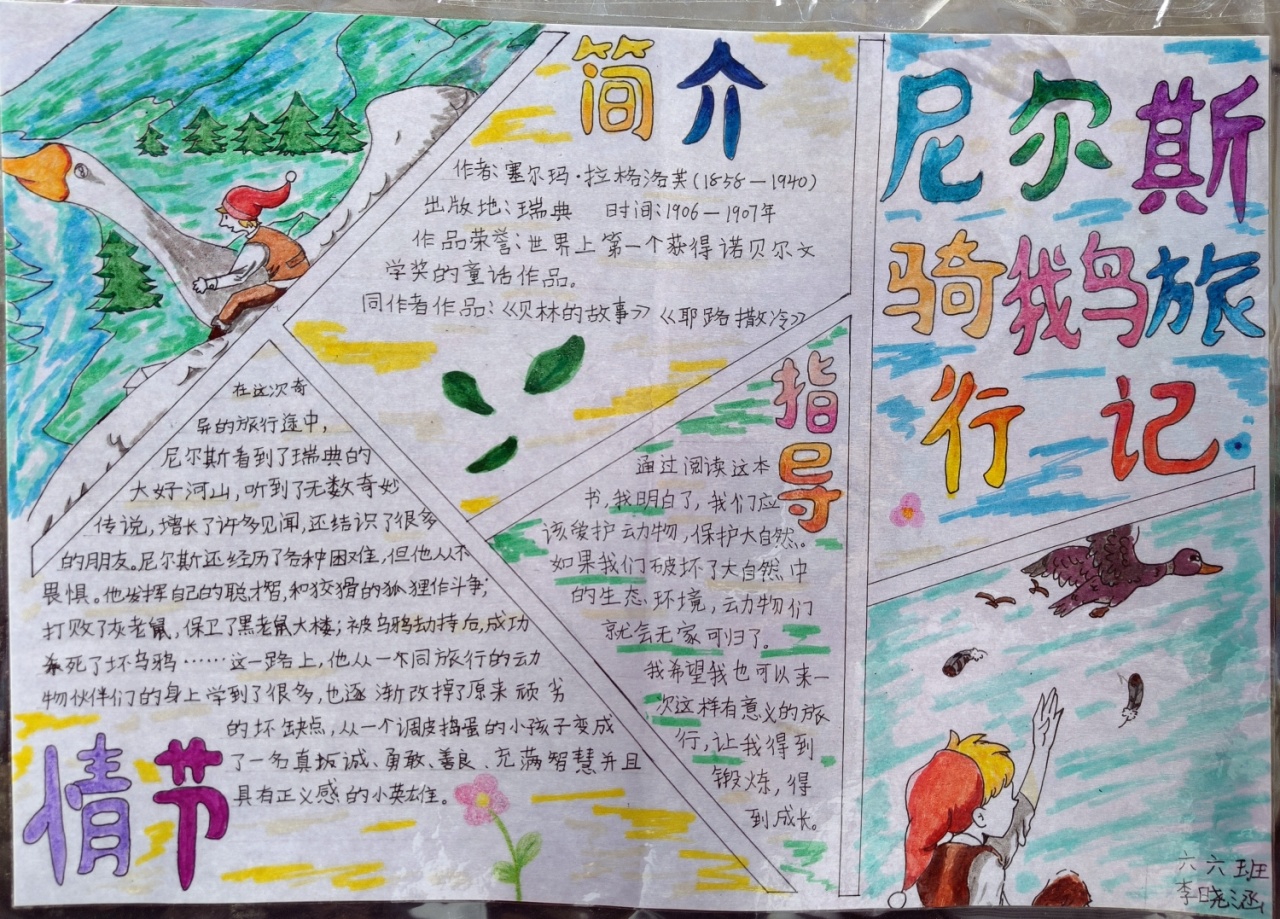 尼尔斯
骑鹅旅
行记
简介
作者:塞尔玛·拉格洛芙(1858—1940)
出版地:瑞典 时间:1906—1907年
作品荣誉:世界上第一个获得诺贝尔文
学奖的童话作品。
同作者作品:《贝林的故事》《耶路撒冷》
情节
在这次奇
异的旅行途中,
尼尔斯看到了瑞典的
大好河山,听到了无数奇妙
传说,增长了许多见闻,还结识了很多
的朋友。尼尔斯还经历了各种困难,但他从不
畏惧。他发挥自己的聪才智,和狡猾的狐狸作斗争;
打败了灰老鼠,保卫了黑老鼠大楼;被乌鸦劫持后,成功
杀死了坏乌鸦……这一路上,他从一个同旅行的动
物伙伴们的身上学到了很多,也逐渐改掉了原来顽劣
的坏缺点,从一个调皮捣蛋的小孩子变成
了一名真诚、勇敢、善良、充满智慧并且
具有正义感的小英雄。
指导
通过阅读这本
书,我明白了,我们应
该爱护动物,保护大自然。
如果我们破坏了大自然中
的生态环境,动物们
就会无家可归了。
我希望我也可以来一
次这样有意义的旅
行,让我得到
锻炼,得
到成长。
六六班
李晓涵